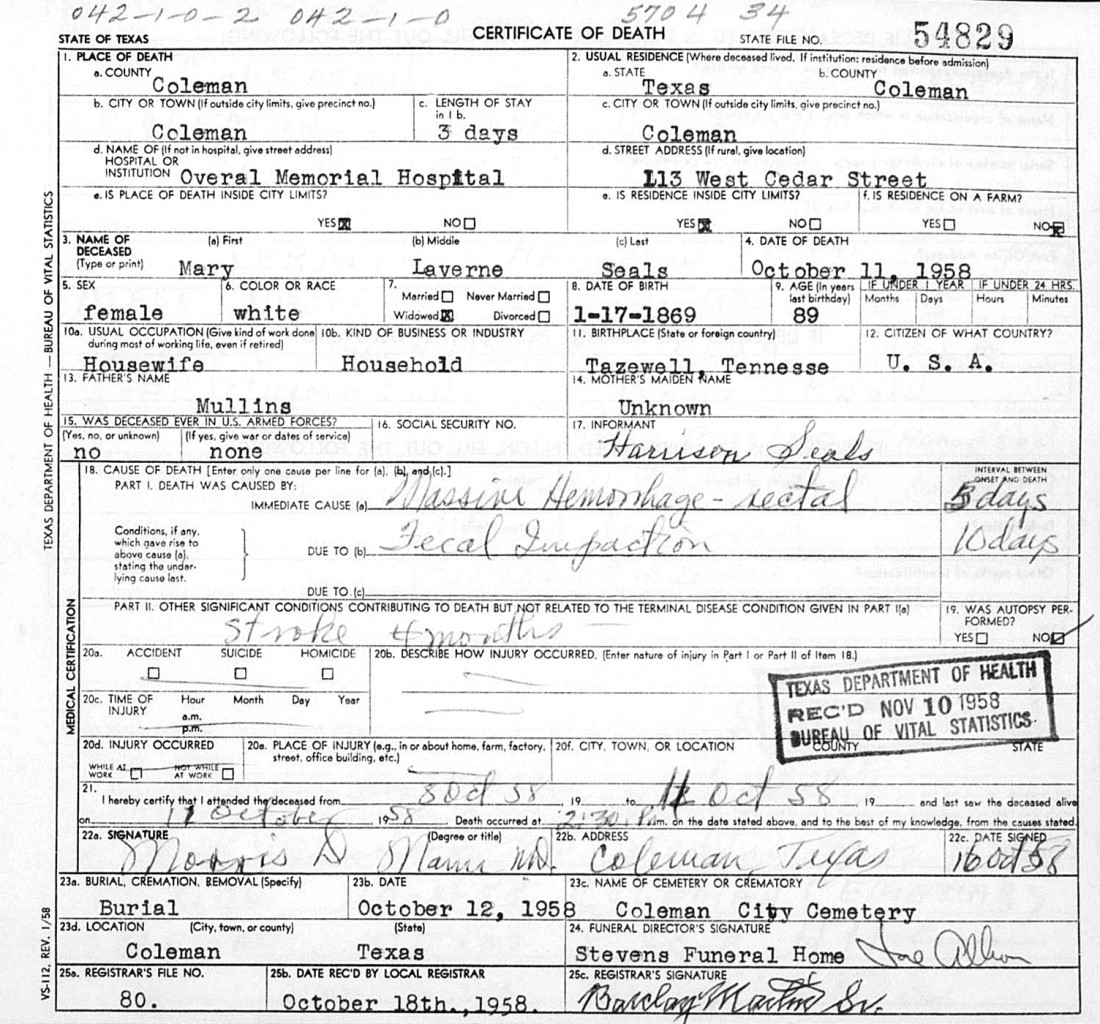 042-1-0-2 042-1-0 5704 34
STATE OF TEXAS CERTIFICATE OF DEATH STATE FILE NO. 54829
1. PLACE OF DEATH
a. COUNTY
Coleman
2. USUAL RESIDENCE (Where deceased lived. If institution: residence before admission)
a. STATE b. COUNTY
Texas Coleman
b. CITY OR TOWN (If outside city limits, give precinct no.)
Coleman
c. LENGTH OF STAY
in 1 b.
3 days
c. CITY OR TOWN (If outside city limits, give precinct no.)
Coleman
d. NAME OF (If not in hospital, give street address)
HOSPITAL OR
INSTITUTION Overal Memorial Hospital
d. STREET ADDRESS (If rural, give location)
113 West Cedar Street
e. IS PLACE OF DEATH INSIDE CITY LIMITS?
YES X NO
e. IS RESIDENCE INSIDE CITY LIMITS?
YES X NO
f. IS RESIDENCE ON A FARM?
YES NO X
3. NAME OF
DECEASED
(Type or print)
(a) First (b) Middle (c) Last
Mary Laverne Seals
4. DATE OF DEATH
October 11, 1958
5. SEX
female
6. COLOR OR RACE
white
7.
Married Never Married
Widowed X Divorced
8. DATE OF BIRTH
1-17-1869
9. AGE (In years
last birthday)
89
IF UNDER 1 YEAR
Months Days
IF UNDER 24 HRS.
Hours Minutes
10a. USUAL OCCUPATION (Give kind of work done
during most of working life, even if retired)
Housewife
10b. KIND OF BUSINESS OR INDUSTRY
Household
11. BIRTHPLACE (State or foreign country)
Tazewell, Tennesse
12. CITIZEN OF WHAT COUNTRY?
U. S. A.
13. FATHER'S NAME
Mullins
14. MOTHER'S MAIDEN NAME
Unknown
15. WAS DECEASED EVER IN U.S. ARMED FORCES?
(Yes, no, or unknown) (If yes, give war or dates of service)
no none
16. SOCIAL SECURITY NO.
17. INFORMANT
Harrison Seals
18. CAUSE OF DEATH [Enter only one cause per line for (a), (b), and (c).]
PART I. DEATH WAS CAUSED BY:
IMMEDIATE CAUSE (a) Massive Hemorrhage - rectal
INTERVAL BETWEEN
ONSET AND DEATH
3 days
Conditions, if any,
which gave rise to
above cause (a),
stating the under-
lying cause last.
DUE TO (b) Fecal Impaction
10 days
DUE TO (c)
PART II. OTHER SIGNIFICANT CONDITIONS CONTRIBUTING TO DEATH BUT NOT RELATED TO THE TERMINAL DISEASE CONDITION GIVEN IN PART I(a)
Stroke 4 months
19. WAS AUTOPSY PER-
FORMED?
YES NO
20a. ACCIDENT SUICIDE HOMICIDE
20b. DESCRIBE HOW INJURY OCCURRED. (Enter nature of injury in Part I or Part II of Item 18.)
20c. TIME OF
INJURY
Hour Month Day Year
a.m.
p.m.
TEXAS DEPARTMENT OF HEALTH
REC'D NOV 10 1958
BUREAU OF VITAL STATISTICS
20d. INJURY OCCURRED
WHILE AT
WORK
NOT WHILE
AT WORK
20e. PLACE OF INJURY (e.g., in or about home, farm, factory,
street, office building, etc.)
20f. CITY, TOWN, OR LOCATION COUNTY STATE
21.
I hereby certify that I attended the deceased from 8 Oct 58, 19 to 11 Oct 58, 19 and last saw the deceased alive
on 11 October, 1958 Death occurred at 2:30 P.m. on the date stated above, and to the best of my knowledge, from the causes stated.
22a. SIGNATURE (Degree or title)
Morris D Mann M.D.
22b. ADDRESS
Coleman Texas
22c. DATE SIGNED
16 Oct 58
23a. BURIAL, CREMATION, REMOVAL (Specify)
Burial
23b. DATE
October 12, 1958
23c. NAME OF CEMETERY OR CREMATORY
Coleman City Cemetery
23d. LOCATION (City, town, or county) (State)
Coleman Texas
24. FUNERAL DIRECTOR'S SIGNATURE
Stevens Funeral Home
25a. REGISTRAR'S FILE NO.
80.
25b. DATE REC'D BY LOCAL REGISTRAR
October 18th., 1958.
25c. REGISTRAR'S SIGNATURE
Barclay Martin Sr.
TEXAS DEPARTMENT OF HEALTH — BUREAU OF VITAL STATISTICS
MEDICAL CERTIFICATION
VS-112, REV. 1/58